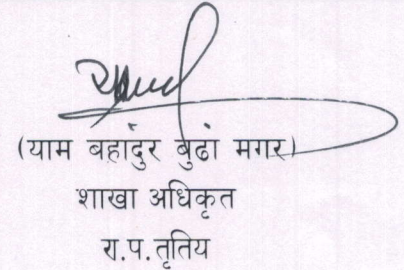 (याम बहांदुर बुढां मगर)
शाखा अधिकृत
रा.प.तृतिय